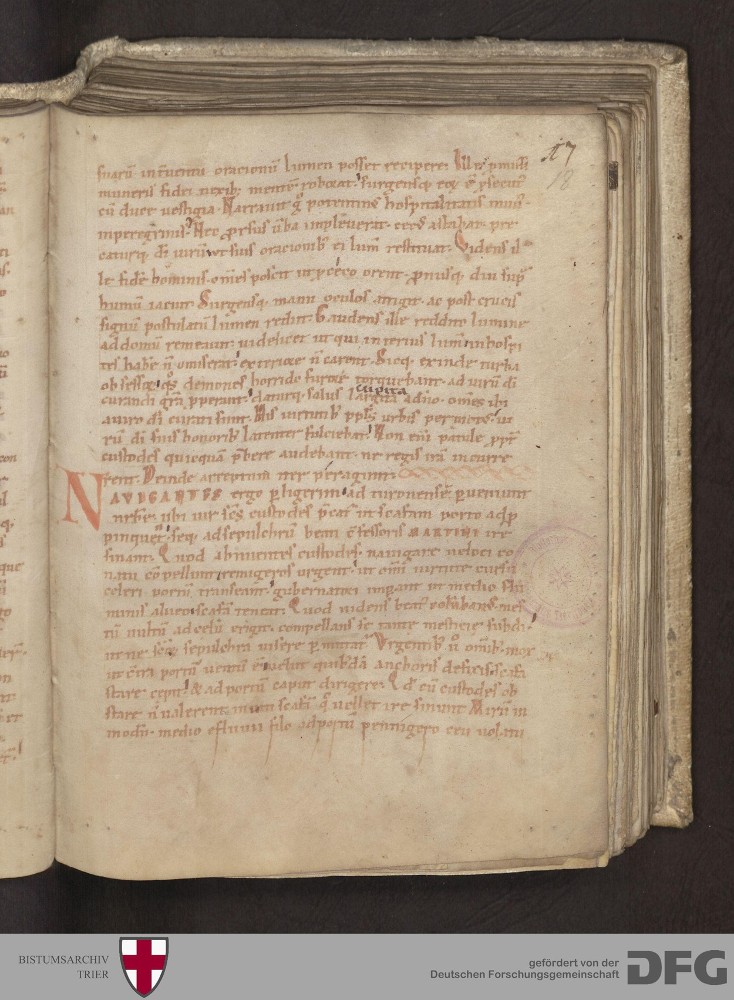 suarũ incuentu oracionũ lumen posset recipere. Ille p̃missi
muneris fidei nexib; mentẽ roborat. surgensq; eoꝝ ẽ p̃secut
cũ duce uestigia. Narrauit q̃ potenmine hospitalitatis
inperegrinis. Nec prorsus uba impleuerat. cecus astabat pre
catusq; dĩ uirũ ut suis oracionib; ei lumẽ restituat. Videns il
le fidẽ hominis. oms poscit ut p ceco orent. pronusq; diu sup
humũ iacuit. Surgensq; manu oculos attigit. ac post crucis
signũ postulatũ lumen redit. Gaudens ille reddito lumine
ad domũ remeauit. uidelicet ut qui interius lumẽ in hospi
tes habẽ ñ omiserat. exteriore ñ carent. Sicq; exinde turba
obsessoꝝ. q̃s demones horrido furore torquebant. ad uirũ dĩ
curandi grã pperant. daturq; salus largita adiuo. omes ibi
cupita
auxo dĩ curati sunt. His uirtutib; ppls urbis permotus. ui
rũ dĩ suis honorib; latenter fulciebat. Non eñi palule ppt
custodes quicquã pbere audebant. ne regis irã incurre
rent. Deinde acceptum iter peragunt.
NAVIGANTES ergo p ligerim. ad turonensẽ pueniunt
urbẽ. ubi uir scs custodes pcat. ut scafam porto adp
pinquet. seq; ad sepulchrũ beati cõfessoris MARTINI ire
sinant. Quod abnuentes custodes. nauigare ueloci co
natu cõpellunt. remigeros urgent. ut omi uirtute cursu
celeri portũ transeant. gubernatori impant ut medio flu
minis alueo scafã teneat. Quod uidens beat; columbanus. mes
tũ uultũ ad celũ erigit. compellans se tante mesticie subdi.
ut ne scõꝝ sepulchra uisere pmittat. Vrgentib; ũ omib; mox
ut cõtra portũ uentũ ẽ. uelut quibdã anchoris defixis scafa
stare cepit. & ad portũ caput dirigere. Qd cũ custodes ob
stare ñ ualerent. inuiti scafã q̃ uellet ire sinunt. Mirũ in
modũ. medio e fluuii filo ad portũ pennigero ceu uolatu
17
18
BISTUMSARCHIV
TRIER
gefördert von der
Deutschen Forschungsgemeinschaft
DFG